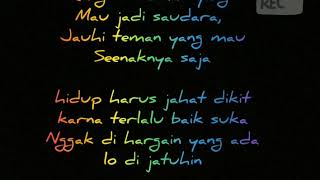 REC
Mau jadi saudara,
Jauhi teman yang mau
Seenaknya saja
hidup harus jahat dikit
karna terlalu baik suka
Nggak di hargain yang ada
lo di jatuhin